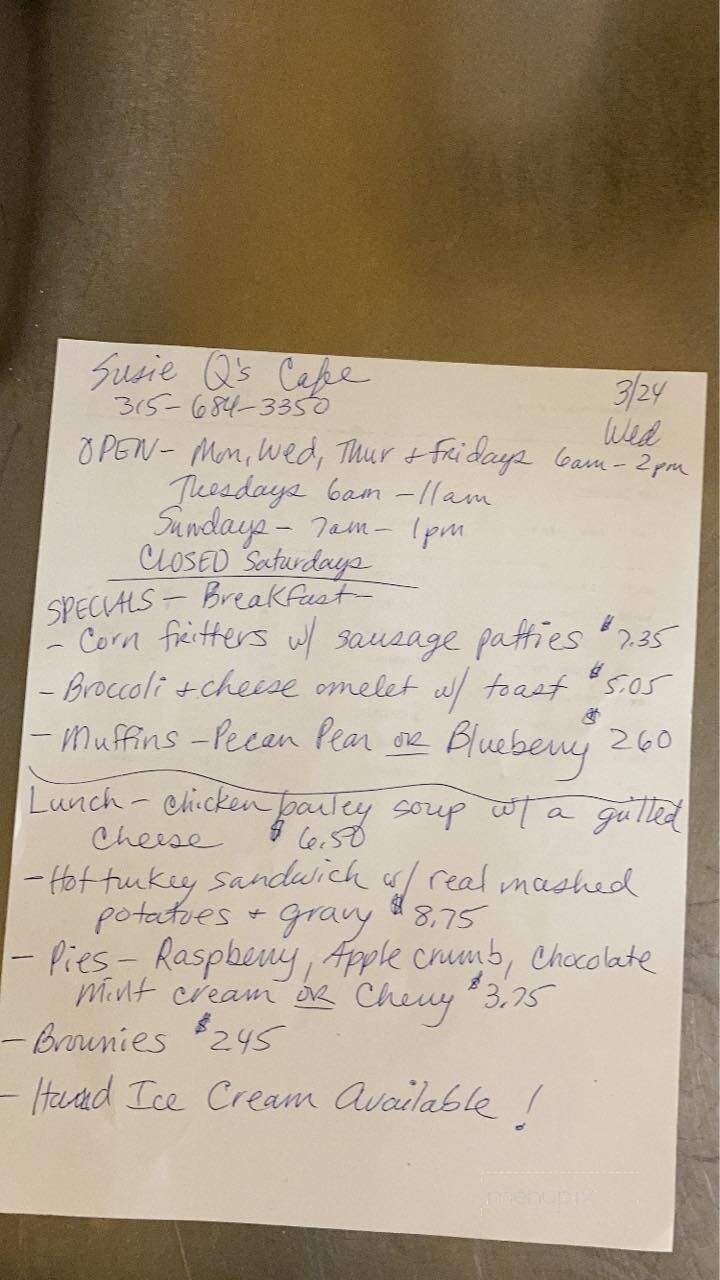 Susie Q's Cafe
3/24
315-684-3350
Wed
OPEN - Mon, Wed, Thur + Fridays 6am - 2pm
Tuesdays 6am - 11am
Sundays - 7am - 1pm
CLOSED Saturdays
SPECIALS - Breakfast
- Corn fritters w/ sausage patties $7.35
- Broccoli + cheese omelet w/ toast $5.05
- Muffins - Pecan Pear OR Blueberry $2.60
Lunch - chicken barley soup w/ a grilled
cheese $6.50
- Hot turkey sandwich w/ real mashed
potatoes + gravy $8.75
- Pies - Raspberry, Apple crumb, Chocolate
Mint cream OR Cherry $3.75
- Brownies $2.45
- Hard Ice Cream Available!
menupix